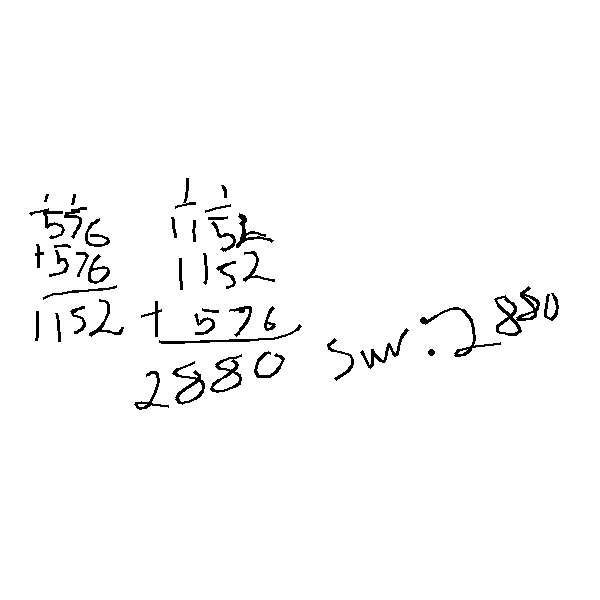 1 1
576
+576
1152
1 1
1152
1152
+ 576
2880
Svar: 2880